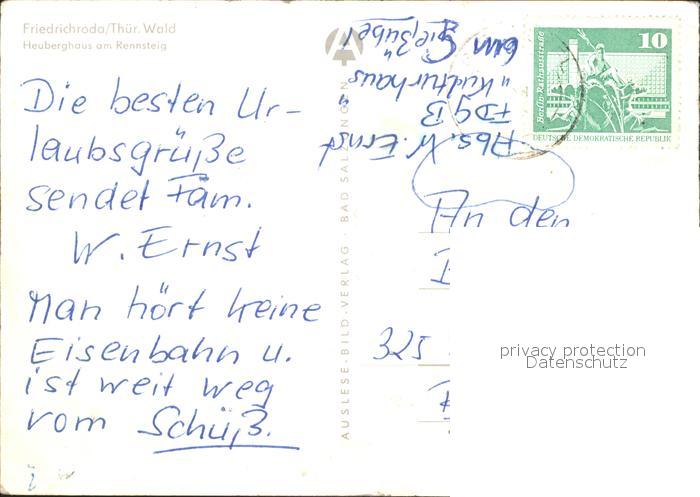 Friedrichroda/Thür. Wald
Heuberghaus am Rennsteig
Die besten Ur-
laubsgrüße
sendet Fam.
W. Ernst
Man hört keine
Eisenbahn u.
ist weit weg
vom Schüß.
AUSLESE-BILD-VERLAG · BAD SALZUNGEN
Abs. W. Ernst
FDGB
"Kulturhaus"
Gießübel
10
Berlin · Rathausstraße
DEUTSCHE DEMOKRATISCHE REPUBLIK
An den
325
privacy protection
Datenschutz